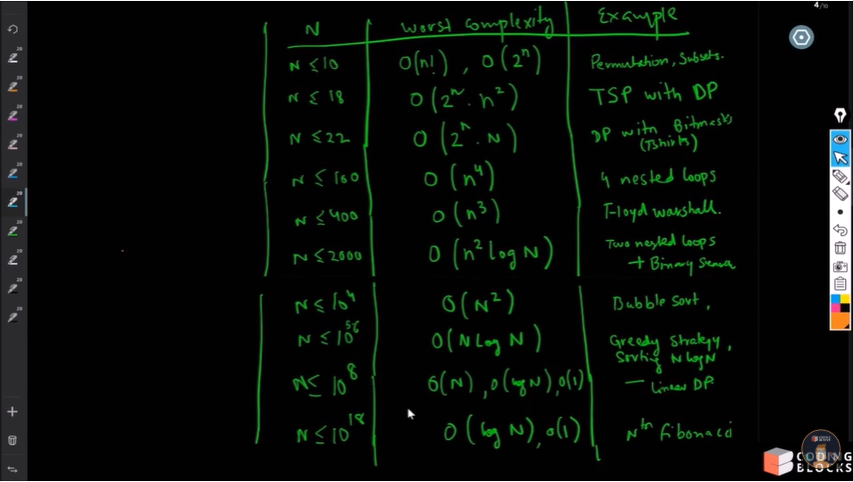 4/10
N worst complexity Example
N ≤ 10 O(n!) , O(2^n) Permutation, Subsets.
N ≤ 18 O(2^n . n^2) TSP with DP
N ≤ 22 O(2^n . N) DP with Bitmasks
(Tshirts)
N ≤ 100 O(n^4) 4 nested loops
N ≤ 400 O(n^3) Floyd warshall.
N ≤ 2000 O(n^2 log N) Two nested loops
+ Binary
N ≤ 10^4 O(N^2) Bubble sort,
N ≤ 10^56 O(N Log N) Greedy Strategy,
Sorting N Log N
N ≤ 10^8 O(N), O(log N), O(1) — Linear DP
N ≤ 10^18 O(log N), O(1) Nth Fibonacci
CODING
BLOCKS